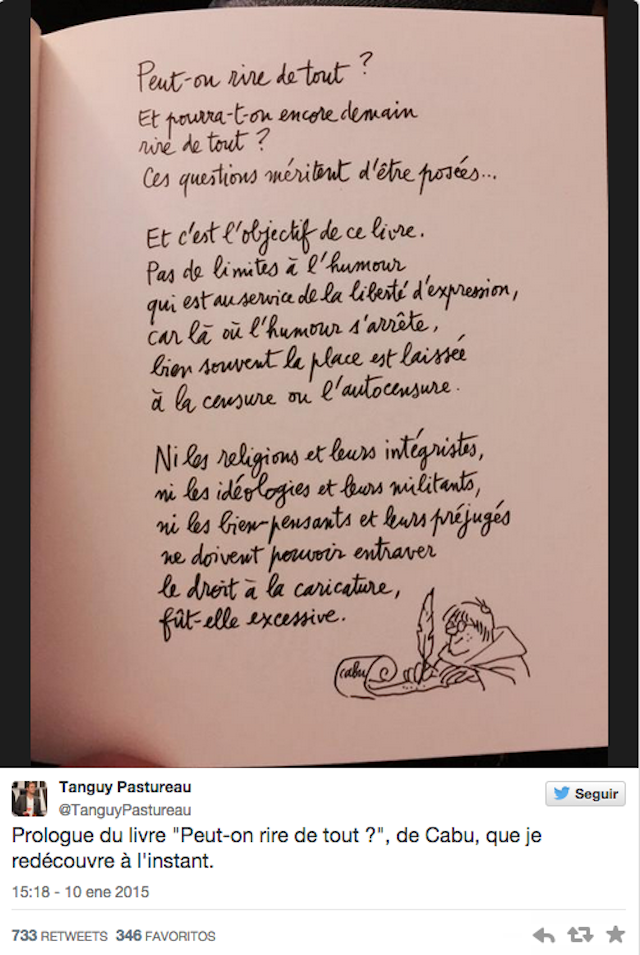 Peut-on rire de tout ?
Et pourra-t-on encore demain
rire de tout ?
Ces questions méritent d'être posées...
Et c'est l'objectif de ce livre.
Pas de limites à l'humour
qui est au service de la liberté d'expression,
car là où l'humour s'arrête,
bien souvent la place est laissée
à la censure ou l'autocensure.
Ni les religions et leurs intégristes,
ni les idéologies et leurs militants,
ni les bien-pensants et leurs préjugés
ne doivent pouvoir entraver
le droit à la caricature,
fût-elle excessive.
cabu
Tanguy Pastureau
@TanguyPastureau
Seguir
Prologue du livre "Peut-on rire de tout ?", de Cabu, que je
redécouvre à l'instant.
15:18 - 10 ene 2015
733 RETWEETS 346 FAVORITOS